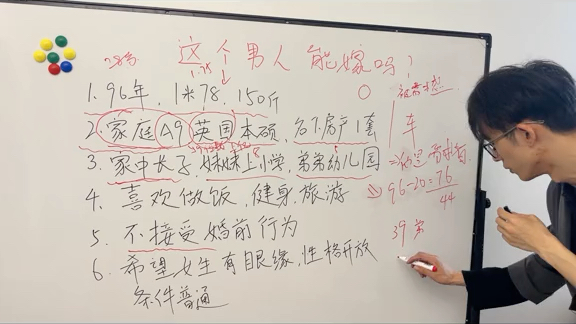 28岁
这个男人能嫁吗?
1.75
1. 96年, 1米78, 150斤
2. 家庭A9 英国本硕, 名下房产1套
3. 家中长子, 妹妹上小学, 弟弟幼儿园
4. 喜欢做饭, 健身, 旅游
5. 不接受婚前行为
6. 希望女生有眼缘, 性格开放
条件普通
车
96-20=76
44
39岁